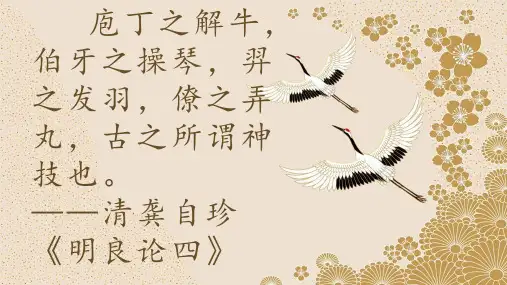 庖丁之解牛，
伯牙之操琴，羿
之发羽，僚之弄
丸，古之所谓神
技也。
——清龚自珍
《明良论四》